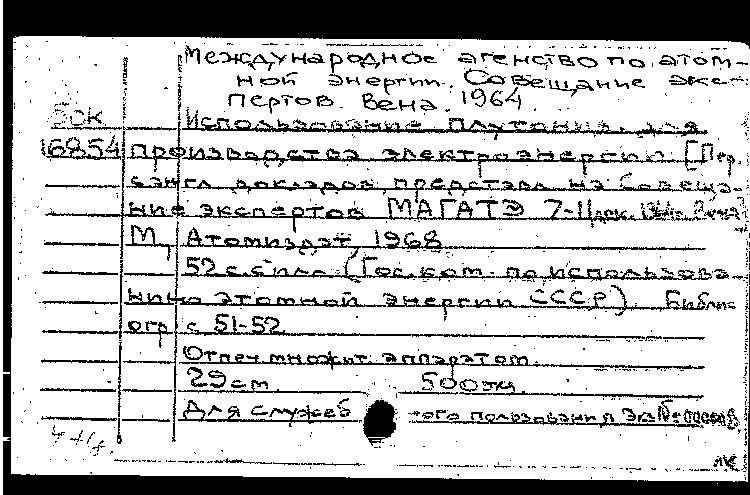 Международное агенство по атом-
ной энергии. Совещание экс-
пертов. Вена. 1964.
БСК Использование плутония для
16854 производства электроэнергии. [Пер.
с англ. докладов, представл. на Совеща-
ние экспертов МАГАТЭ 7-11 дек. 1964г. Вена]
М., Атомиздат, 1968
52 с. с илл. (Гос. ком. по использова-
нию атомной энергии СССР). Библи-
огр. с 51-52
Отпеч. множит. аппаратом.
29 см. 500 экз.
Для служеб ого пользования Экз №